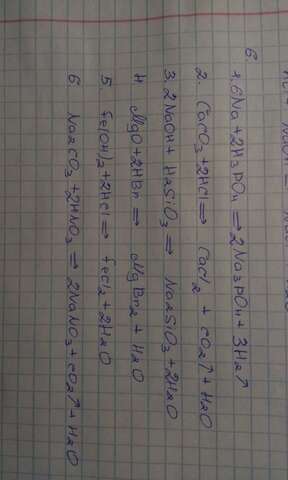 6.
1. 6Na + 2H3PO4 ⇒ 2Na3PO4 + 3H2↑
2. CaCO3 + 2HCl ⇒ CaCl2 + CO2↑ + H2O
3. 2NaOH + H2SiO3 ⇒ Na2SiO3 + 2H2O
4 MgO + 2HBr ⇒ MgBr2 + H2O
5. Fe(OH)2 + 2HCl ⇒ FeCl2 + 2H2O
6. Na2CO3 + 2HNO3 ⇒ 2NaNO3 + CO2↑ + H2O